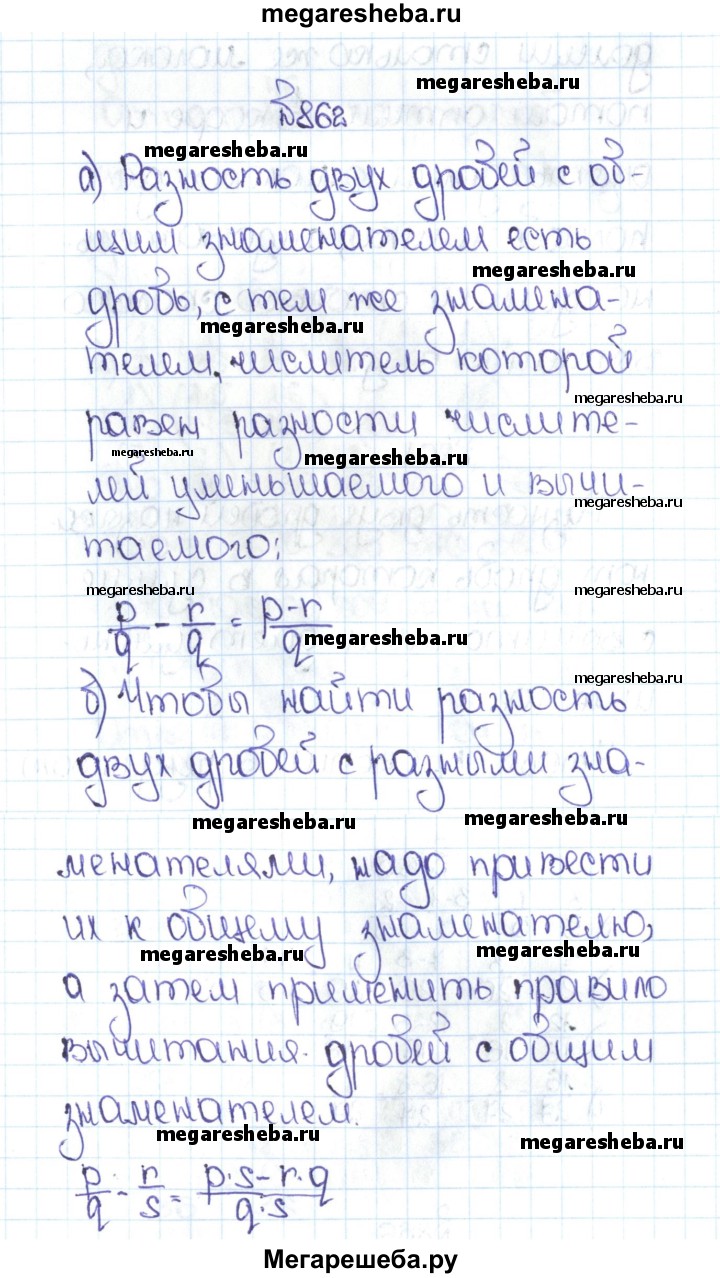 megaresheba.ru
megaresheba.ru
№862
megaresheba.ru
а) Разность двух дробей с об-
щим знаменателем есть
megaresheba.ru
дробь, с тем же знамена-
megaresheba.ru
телем, числитель которой
megaresheba.ru
равен разности числите-
megaresheba.ru
megaresheba.ru
лей уменьшаемого и вычи-
megaresheba.ru
таемого:
megaresheba.ru
megaresheba.ru
p/q - r/q = p-r/q
megaresheba.ru
megaresheba.ru
б) Чтобы найти разность
двух дробей с разными зна-
megaresheba.ru
megaresheba.ru
менателями, надо привести
их к общему знаменателю,
megaresheba.ru
megaresheba.ru
а затем применить правило
вычитания дробей с общим
знаменателем.
megaresheba.ru
megaresheba.ru
p/q - r/s = p·s-r·q/q·s
Мегарешеба.ру